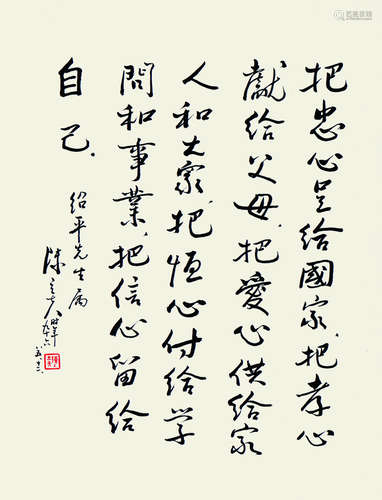 把忠心呈给國家.把孝心
獻给父母.把愛心供给家
人和大家.把恒心付给学
問和事業.把信心留给
自己.
绍平先生属
陳立夫 時年九六